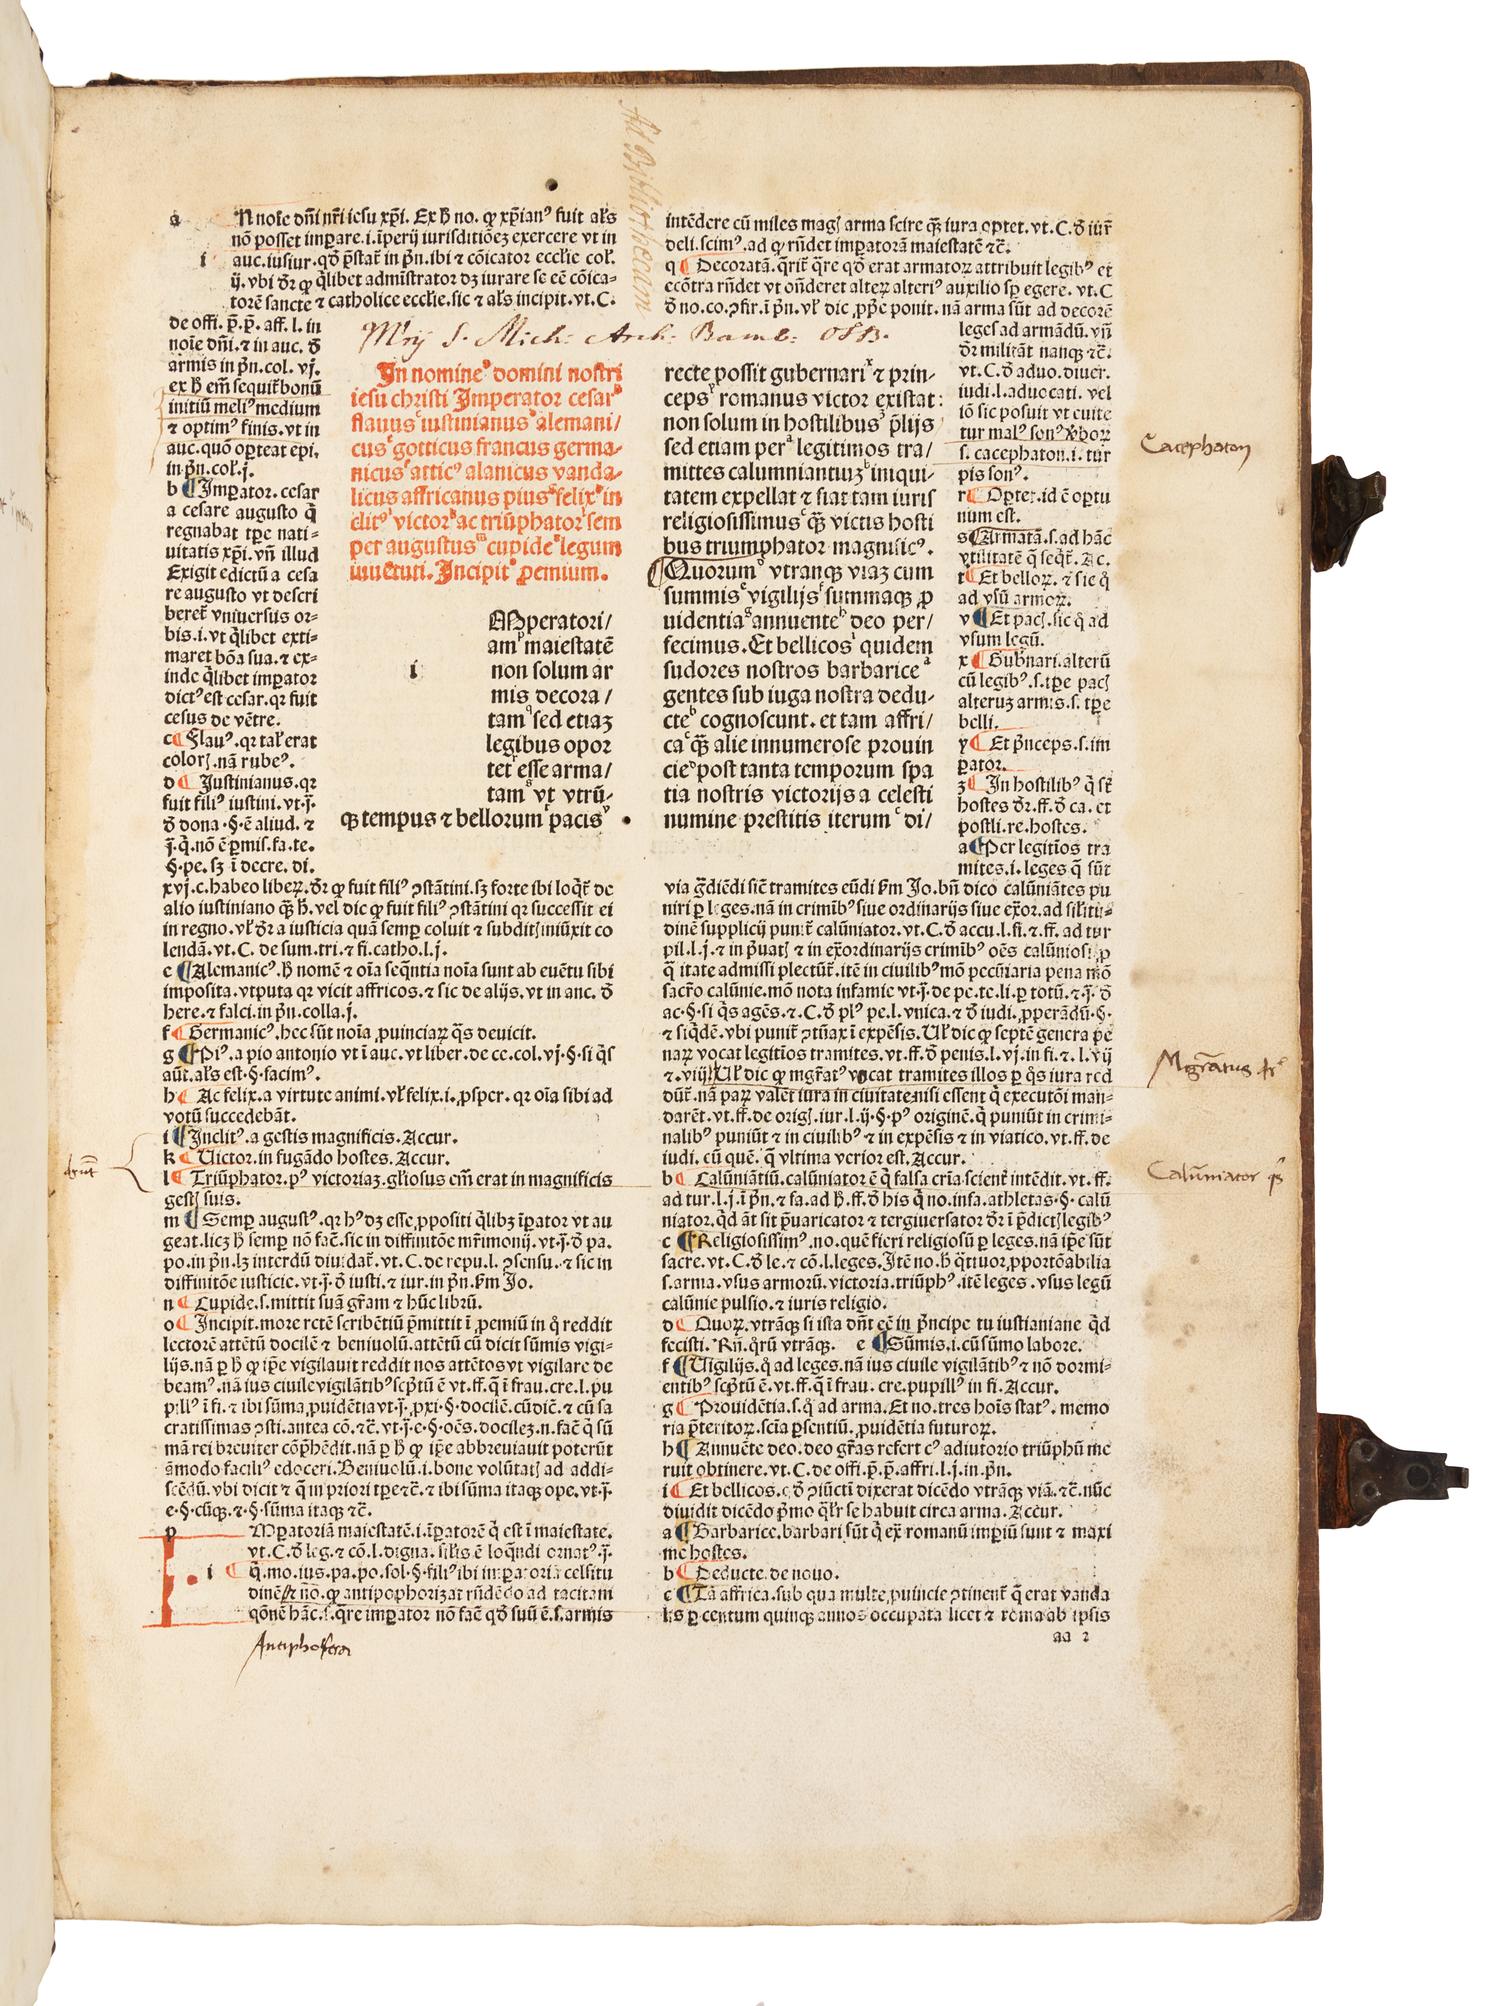 Ad Bibliothecam
Mrij S. Mich: Arch: Bamb: OSB.
a
N noīe dñi nr̄i iesu xp̄i. Ex ħ no. ꝙ xp̄ianꝰ fuit al's
nō posset imꝑare.i.īperij iurisditiōeꝫ exercere vt in
i auc.iusiur.qď p̄stat̄ in pñ.ibi ⁊ cōicator ecclīe col'.
ij. vbi ďr ꝙ q̄libet admīstrator dꝫ iurare se eē cōica-
torē sancte ⁊ catholice ecclīe.sic ⁊ al's incipit.vt.C.
de offi. p̄. p̄. aff. l. in
noīe dñi.⁊ in auc. ď
armis in pñ.col. vj.
ex ħ em̄ sequit̄ bonū
initiū meliꝰ medium
⁊ optimꝰ finis.vt in
auc.quō oꝑteat epi.
in pñ.col'.j.
b ¶ Imꝑator. cesar
a cesare augusto q̄
regnabat tꝑe nati-
uitatis xp̄i. vñ illud
Exigit edictū a cesa
re augusto vt descri
beret̄ vniuersus or-
bis.i.vt q̄libet exti-
maret bōa sua.⁊ ex-
inde q̄libet imꝑator
dictꝰ est cesar.qꝛ fuit
cesus de vētre.
c ¶ Flauꝰ. qꝛ tal' erat
colorꝭ.nā rubeꝰ.
d ¶ Justinianus.qꝛ
fuit filiꝰ iustini.vt.j̄.
ď dona.§.ē aliud. ⁊
j̄.q̄.nō ē ꝑmis.fa.te.
§.pe.sꝫ ī decre. di.
xvj.c.habeo libeꝝ.ďr ꝙ fuit filiꝰ ꝯstātini.sꝫ forte ibi loq̄t̄ de
alio iustiniano q̄ꝫ ħ. vel dic ꝙ fuit filiꝰ ꝯstātini qꝛ successit ei
in regno. vl' ďr a iusticia quā semꝑ coluit ⁊ subditꝭ iniūxit co
lendā.vt.C. de sum.tri.⁊ fi.catho.l.j.
e ¶ Alemanicꝰ. ħ nomē ⁊ oīa seq̄ntia noīa sunt ab euētu sibi
imposita.vtputa qꝛ vicit affricos.⁊ sic de alijs.vt in auc. ď
here.⁊ falci.in pñ.colla.j.
f ¶ Germanicꝰ.hec sūt noīa ꝓuinciaꝝ q̄s deuicit.
g ¶ Piꝰ.a pio antonio vt ī auc.vt liber.de ce.col.vj.§.si q̄s
aūt.al's est.§.facimꝰ.
h ¶ Ac felix.a virtute animi. vl' felix.i.ꝓsper. qꝛ oīa sibi ad
votū succedebāt.
i ¶ Inclitꝰ.a gestis magnificis.Accur.
k ¶ Victor.in fugādo hostes.Accur.
l ¶ Triūphator.pꝰ victoriaꝫ.gl'iosus em̄ erat in magnificis
gestꝭ suis.
m ¶ Semꝑ augustꝰ.qꝛ hꝰ dꝫ esse ꝓpositi q̄libꝫ īꝑator vt au
geat.licꝫ ħ semꝑ nō facī̄.sic in diffinitōe mr̄imonij.vt.j̄.ď pa.
po.in pñ.lꝫ interdū diuidat̄.vt.C.de repu.l. ꝯsensu.⁊ sic in
diffinitōe iusticie.vt.j̄.ď iusti.⁊ iur.in pñ.Fm Jo.
n ¶ Cupide.s.mittit suā gr̄am ⁊ hūc librū.
o ¶ Incipit.more rctē scribētiū p̄mittit ī ꝓemiū in q̄ reddit
lectorē attētū docilē ⁊ beniuolū.attētū cū dicit sūmis vigi-
lijs.nā ꝑ ħ ꝙ ip̄e vigilauit reddit nos attētos vt vigilare de
beamꝰ.nā ius ciuile vigilātibꝰ scp̄tū ē vt.ff.q̄ ī frau.cre.l.pu
pillꝰ ī fi.⁊ ibi sūma ꝓuidētia vt.j̄.ꝓxi.§.docilē.cū dic̄.⁊ cū sa
cratissimas ꝯsti.antea cō.⁊c̄.vt.j̄.e.§.oēs.docileꝫ.n.fac̄ q̄ sū
mā rei breuiter cōp̄hēdit.nā ꝑ ħ ꝙ ip̄e abbreuiauit poterūt
āmodo faciliꝰ edoceri.Beniuolū.i.bone volūtatꝭ ad addi-
scēdū.vbi dicit ⁊ q̄ in priori tꝑe ⁊c̄.⁊ ibi sūma itaqꝫ ope.vt.j̄.
e.§.cūqꝫ.⁊.§.sūma itaqꝫ ⁊c̄.
p Mꝑatoriā maiestatē.i.īꝑatorē q̄ est ī maiestate.
vt.C.ď leg.⁊ cō.l.digna. sīlis ē loq̄ndi ornatꝰ.j̄.
i ¶ q̄.mo.ius.pa.po.sol.§.filiꝰ ibi imꝑatoria celsitu
dine.⁊ nō.ꝙ antipophorizat rñdēdo ad tacitam
q̄onē hāc.s.q̄re imꝑator nō fac̄ qď suū ē.s.armis
In nomine domini nostri
iesu christi Imperator cesar
flauus iustinianus alemani/
cus gotticus francus germa-
nicus atticꝰ alanicus vanda-
licus affricanus pius felix in
clitꝰ victor ac triūphator sem
per augustus cupide legum
iuuētuti. Incipit ꝓemium.
Mperatori/
am maiestatē
i non solum ar
mis decora /
tam sed etiaꝫ
legibus opor
tet esse arma/
tam vt vtrū-
qꝫ tempus ⁊ bellorum pacis
recte possit gubernari ⁊ prin-
ceps romanus victor existat:
non solum in hostilibus p̄lijs
sed etiam per legitimos tra/
mittes calumniantiuꝫ iniqui-
tatem expellat ⁊ fiat tam iuris
religiosissimus q̄ꝫ victis hosti
bus triumphator magnificꝰ.
¶ Quorum vtranqꝫ viaꝫ cum
summis vigilijs summaqꝫ ꝓ
uidentia annuente deo per/
fecimus. Et bellicos quidem
sudores nostros barbarice
gentes sub iuga nostra dedu-
cte cognoscunt. et tam affri/
ca q̄ꝫ alie innumerose prouin
cie post tanta temporum spa
tia nostris victorijs a celesti
numine prestitis iterum di/
intēdere cū miles magꝭ arma scire q̄ꝫ iura optet. vt.C.ď iur̄
deli.scimꝰ.ad ꝙ rñdet imꝑatorā maiestatē ⁊c̄.
q ¶ Decoratā.q̄rit̄ q̄re qď erat armatoꝝ attribuit legibꝰ et
ecōtra rñdet vt oñderet alteꝝ alteriꝰ auxilio sꝑ egere. vt.C
ď no.co.ꝯfir.ī pñ. vl' dic ꝓpe ponit. nā arma sūt ad decorē
leges ad armādū. vñ
ďr militāt nanqꝫ ⁊c̄.
vt.C.ď aduo.diuer.
iudi.l.aduocati. vel
iō sic posuit vt euite
tur malꝰ sonꝰ v̓boꝝ
s. cacephaton.i. tur
pis sonꝰ.
r ¶ Optet.id ē oportu
num est.
s ¶ Armatā.s.ad hāc
vtilitatē q̄ seq̄t̄. Ac.
t ¶ Et belloꝝ. ⁊ sic q̄
ad vsū armoꝝ.
v ¶ Et pacꝭ.sic q̄ ad
vsum legū.
x ¶ Gub̓nari.alterū
cū legibꝰ.s.tꝑe pacꝭ
alteruꝫ armis.s. tꝑe
belli.
y ¶ Et p̄nceps.s.im
ꝑator.
z ¶ In hostilibꝰ q̄ st̄
hostes ďr.ff.ď ca. et
postli.re.hostes.
a ¶ Per legitīos tra
mites.i. leges q̄ sūt
via gͣdiēdi sic̄ tramites eūdi Fm Jo.bñ dico calūniātes pu
niri ꝑ leges.nā in crimībꝰ siue ordinarijs siue ex̄or.ad sil'itu-
dinē supplicij punit̄ calūniator.vt.C.ď accu.l.fi.⁊ ff. ad tur
pil.l.j.⁊ in p̄uatꝭ ⁊ in ex̄ordinarijs crimībꝰ oēs calūniosi ꝓ
q̄ itate admissi plectūt̄.itē in ciuilibꝰ mō pecūiaria pena mō
sacr̄o calūnie.mō nota infamie vt.j̄.de pe.te.li.ꝑ totū.⁊.j̄. ď
ac.§.si q̄s agēs.⁊.C.ď plꝰ pe.l.vnica.⁊ ď iudi.ꝓperādū.§.
⁊ siq̄dē.vbi punit̄ ꝯtūax ī expēsis.Vl' dic ꝙ septē genera pe
naꝝ vocat legitīos tramites.vt.ff.ď penis.l.vj.in fi.⁊.l.vij
⁊.viij.Vl' dic ꝙ mgr̄atꝰ vocat tramites illos ꝑ q̄s iura red
dūt̄.nā paꝝ valēt iura in ciuitate nisi essent q̄ executōi man-
darēt.vt.ff.de origꝭ.iur.l.ij.§.pꝰ originē.q̄ puniūt in crimi-
nalibꝰ puniūt ⁊ in ciuilibꝰ ⁊ in expēsis ⁊ in viatico.vt.ff.de
iudi.cū quē.q̄ vltima verior est.Accur.
b ¶ Calūniātiū.calūniator ē q̄ falsa crīa scient̄ intēdit.vt.ff.
ad tur.l.j.ī pñ.⁊ fa.ad ħ.ff.ď his q̄ no.infa.athletas.§.calū
niator.q̄d āt sit p̄uaricator ⁊ tergiuersator ďr ī p̄dictꝭ legibꝰ
c ¶ Religiosissimꝰ.no.quē fieri religiosū ꝑ leges.nā ip̄e sūt
sacre.vt.C.ď le.⁊ cō.l.leges.Itē no.ħ q̄tuor ꝓportōabilia
s.arma.vsus armorū.victoria.triūphꝰ.itē leges.vsus legū
calūnie pulsio.⁊ iuris religio.
d ¶ Quoꝝ.vtrāqꝫ si ista dñt eē in p̄ncipe tu iustianiane q̄d
fecisti. Rñ.q̄rū vtrāqꝫ. e ¶ Sūmis.i.cū sūmo labore.
f ¶ Vigilijs.q̄ ad leges.nā ius ciuile vigilātibꝰ ⁊ nō dormi-
entibꝰ scp̄tū ē.vt.ff.q̄ ī frau. cre.pupillꝰ in fi.Accur.
g ¶ Prouidētia.s.q̄ ad arma.Et no.tres hoīs statꝰ. memo
ria p̄teritoꝝ.scīa p̄sentiū.ꝓuidētia futuroꝝ.
h ¶ Annuēte deo.deo gr̄as refert cꝰ adiutorio triūphū me
ruit obtinere.vt.C.de offi.p̄.p̄.affri.l.j.in.pñ.
i ¶ Et bellicos.qď ꝯiūcti dixerat dicēdo vtrāqꝫ viā.⁊c̄.nūc
diuidit dicēdo p̄mo q̄l'r se habuit circa arma. Accur.
a ¶ Barbarice.barbari sūt q̄ ex̄ romanū imꝑiū sunt ⁊ maxi
me hostes.
b ¶ Deducte.de nouo.
c ¶ Tā affrica.sub qua multe ꝓuincie ꝯtinent̄ q̄ erat vanda
lis ꝑ centum quinqꝫ annos occupata licet ⁊ roma ab ipsis
aa 2
Cacephaton
Mgr̄atus
Calūniator